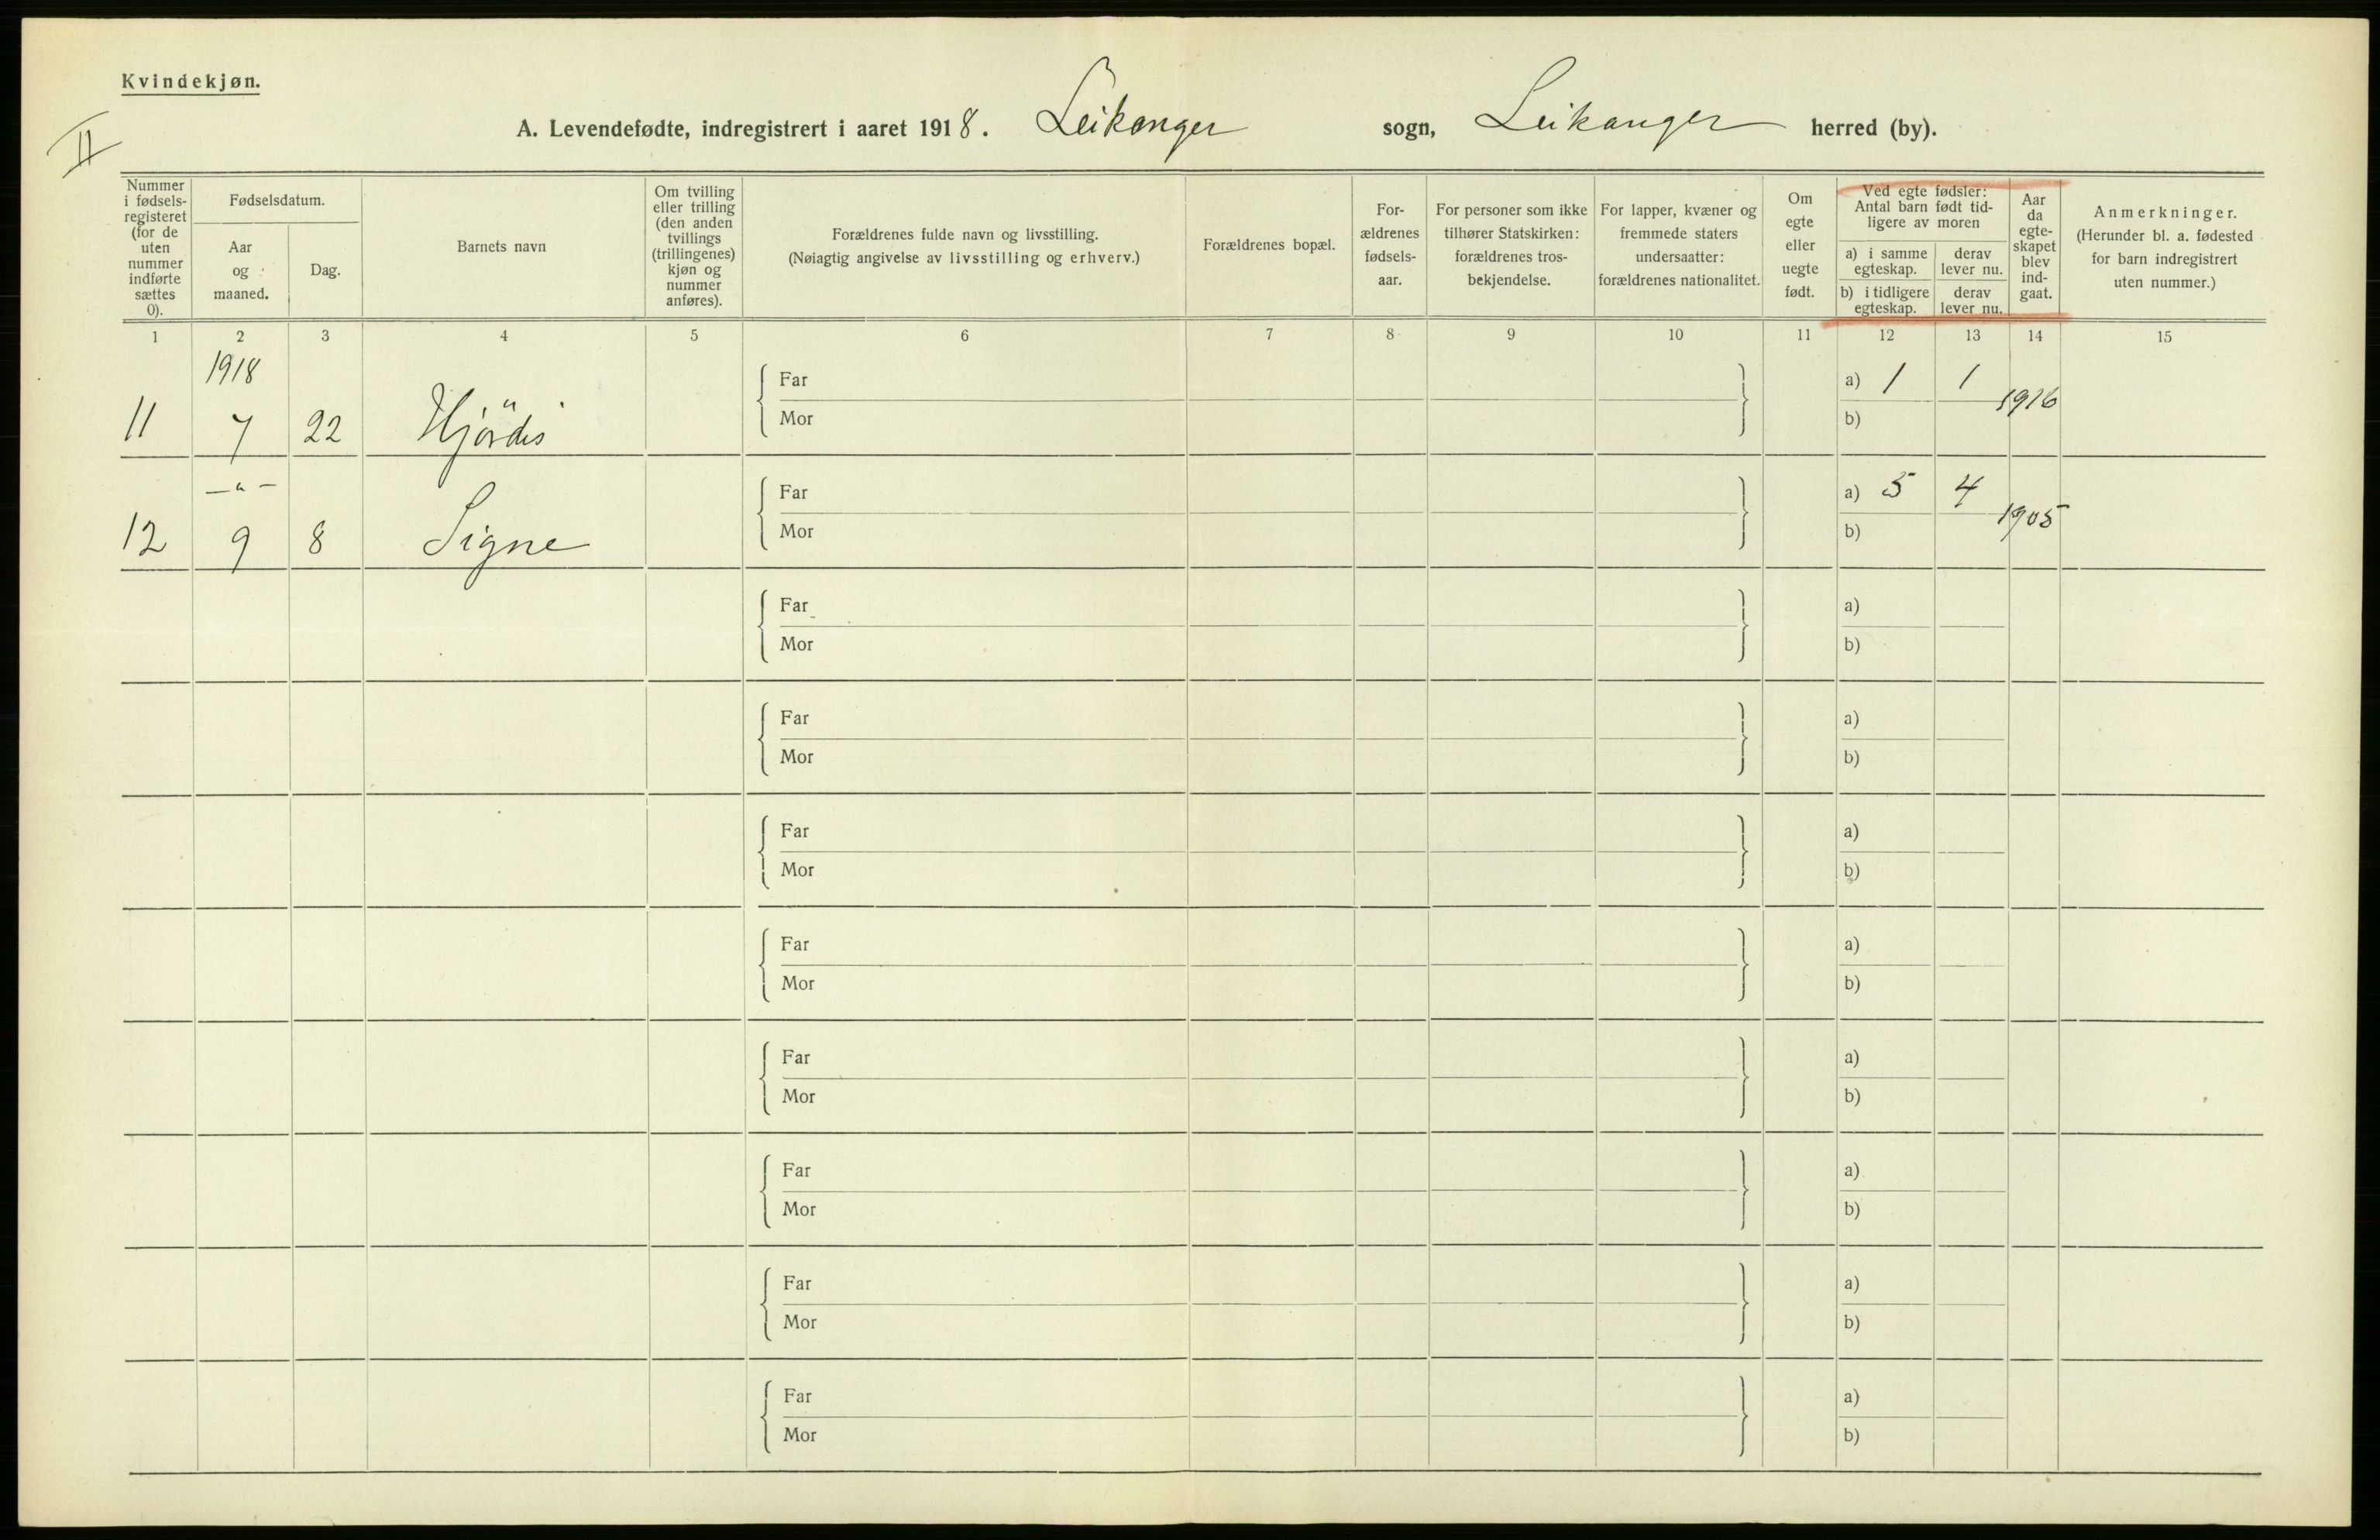 Kvindekjøn.
II
A. Levendefødte, indregistrert i aaret 1918. Leikanger sogn, Leikanger herred (by).
Nummer i fødsels-registeret (for de uten nummer indførte sættes 0).
Fødselsdatum.
Aar og maaned.
Dag.
Barnets navn
Om tvilling eller trilling (den anden tvillings (trillingenes) kjøn og nummer anføres).
Forældrenes fulde navn og livsstilling.
(Nøiagtig angivelse av livsstilling og erhverv.)
Forældrenes bopæl.
For-ældrenes fødsels-aar.
For personer som ikke tilhører Statskirken: forældrenes tros-bekjendelse.
For lapper, kvæner og fremmede staters undersaatter: forældrenes nationalitet.
Om egte eller uegte født.
Ved egte fødsler: Antal barn født tid-ligere av moren
a) i samme egteskap.
derav lever nu.
b) i tidligere egteskap.
derav lever nu.
Aar da egte-skapet blev ind-gaat.
Anmerkninger.
(Herunder bl. a. fødested for barn indregistrert uten nummer.)
1 2 3 4 5 6 7 8 9 10 11 12 13 14 15
1918
Far a) 1 1
1916
11 7 22 Hjördis
Mor b)
—„—
Far a) 5 4
1905
12 9 8 Signe
Mor b)
Far a)
Mor b)
Far a)
Mor b)
Far a)
Mor b)
Far a)
Mor b)
Far a)
Mor b)
Far a)
Mor b)
Far a)
Mor b)
Far a)
Mor b)